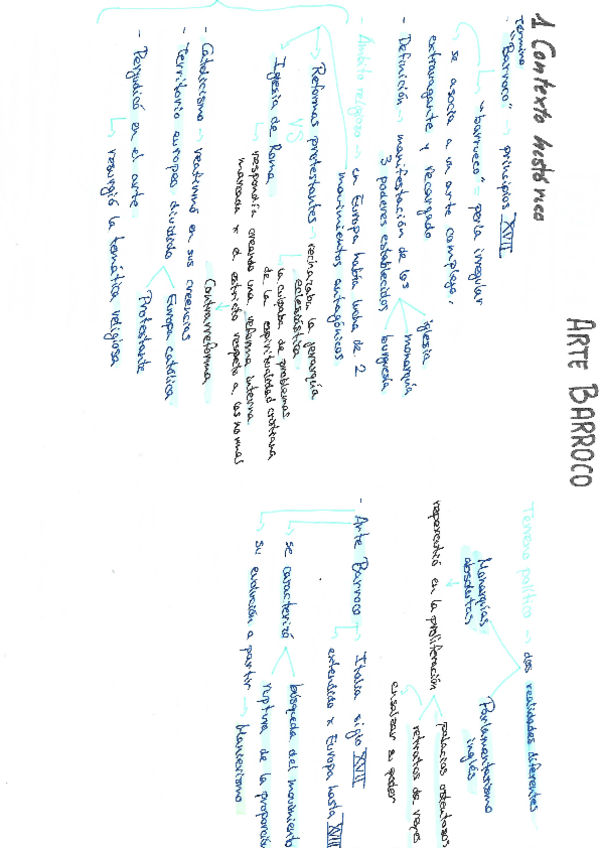 ARTE BARROCO
1 Contexto histórico
término
- "Barroco" → principios XVII
↳ "barrueco" = perla irregular
↳ se asocia a un arte complejo,
extravagante y recargado
- Definición → manifestación de los
3 poderes establecidos
iglesia
monarquía
burguesía
- Ámbito religioso → en Europa había lucha de 2
movimientos antagónicos
Reformas protestantes → rechazaba la jerarquía
eclesiástica
↳ la culpaba de problemas
de la espiritualidad cristiana
VS
Iglesia de Roma
↳ respondía creando una reforma interna
marcada x el estricto respeto a las normas
Contrarreforma
- Catolicismo → reafirmó en sus creencias
- Territorio europeo dividido
Europa católica
Protestante
- Perjudicó en el arte
↳ resurgió la temática religiosa
Terreno político → dos realidades diferentes
Monarquías
absolutas
Parlamentarismo
inglés
repercutió en la proliferación
palacios ostentosos
retratos de reyes
ensalzar su poder
- Arte Barroco → Italia siglo XVII
↳ extendido x Europa hasta XVIII
↳ se caracterizó
búsqueda del movimiento
ruptura de la proporción
↳ su evolución a partir → Manierismo